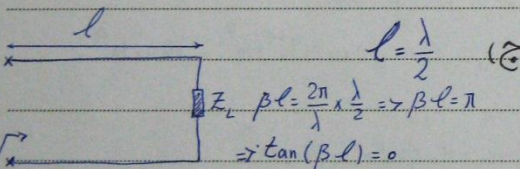 l
l = λ/2
Z_L βl = 2π/λ × λ/2 => βl = π
=> tan(βl) = 0